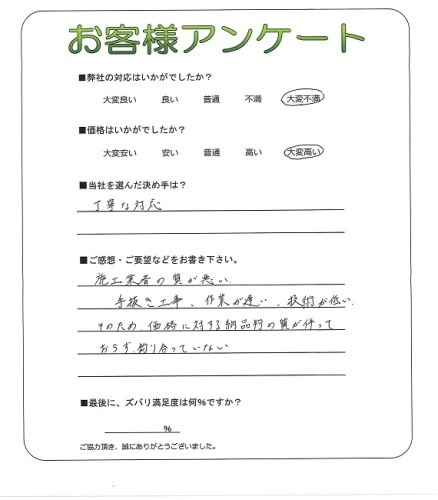 お客様アンケート
■弊社の対応はいかがでしたか？
大変良い 良い 普通 不満 大変不満
■価格はいかがでしたか？
大変安い 安い 普通 高い 大変高い
■当社を選んだ決め手は？
丁寧な対応
■ご感想・ご要望などをお書き下さい。
施工業者の質が悪い.
手抜き工事、作業が遅い、技術が低い.
そのため、価格に対する納品物の質が伴って
おらず、釣り合っていない
■最後に、ズバリ満足度は何%ですか？
%
ご協力頂き、誠にありがとうございました。